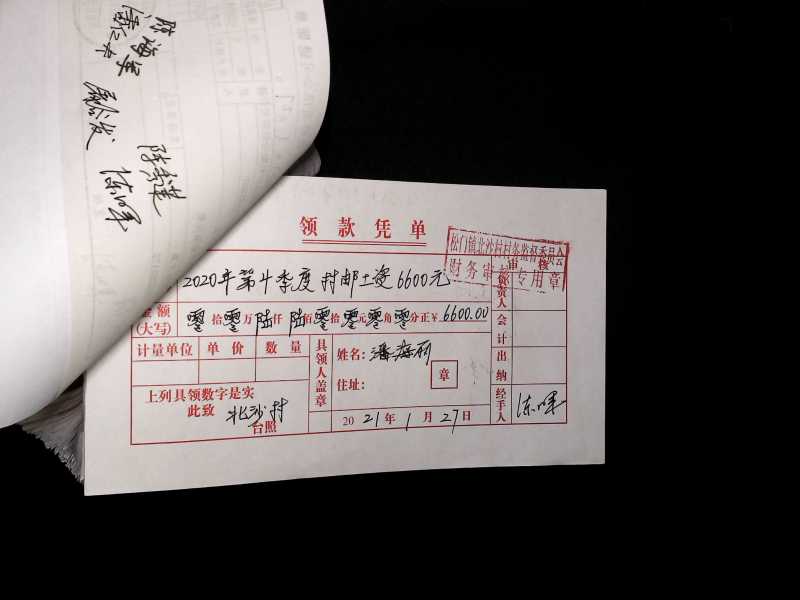 陈海军
陈秀莲
陈军
领款凭单
松门镇北沙村村务监督委员会
财务审核专用章
2020年第4季度 村邮工资6600元
金额
(大写) 零零拾零万陆仟陆佰零拾零元零角零分正¥6600.00
审核
负责人
会计
出纳
经手人 陈军
计量单位 单价 数量
具领人盖章
姓名: 潘海丽
住址:
章
上列具领数字是实
此致 北沙村
台照
2021年1月27日